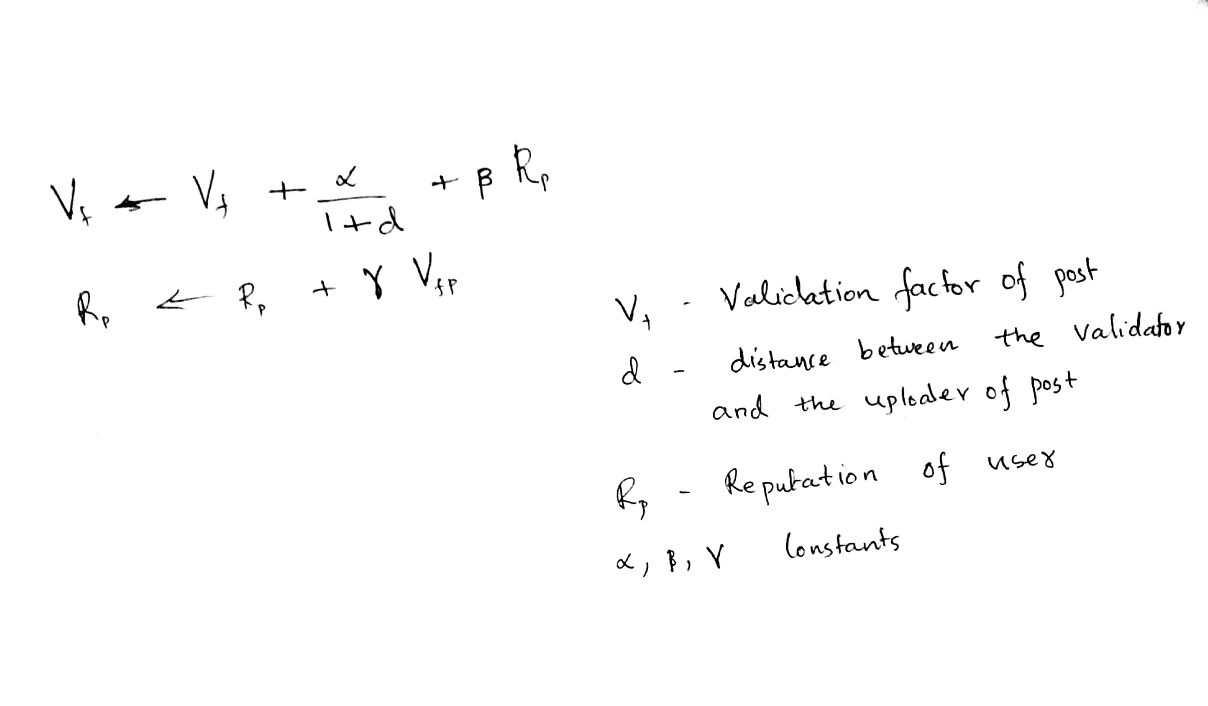 V_f ← V_f + α/(1+d) + β R_p
R_p ← R_p + γ V_fp
V_f - Validation factor of post
d - distance between the validator
and the uploader of post
R_p - Reputation of user
α, β, γ Constants